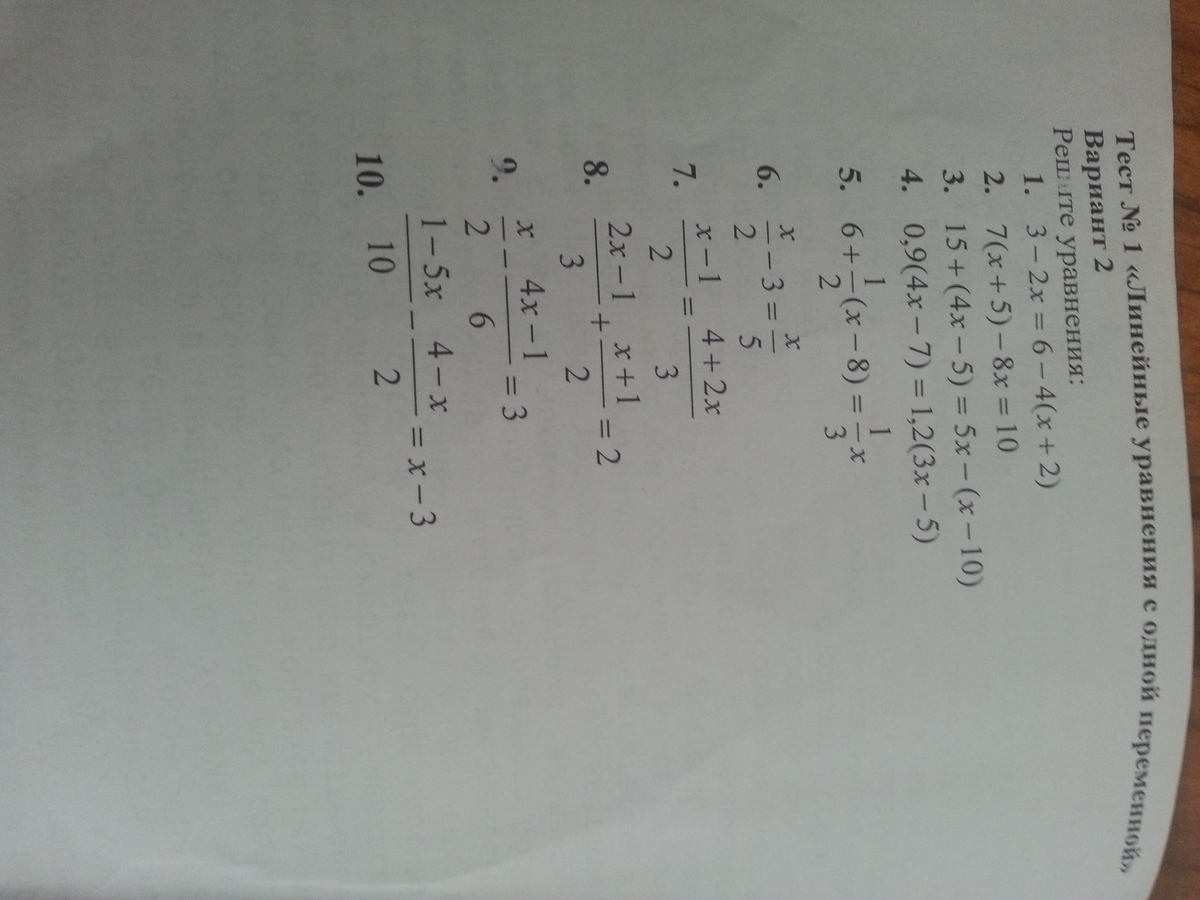 Тест № 1 «Линейные уравнения с одной переменной»
Вариант 2
Решите уравнения:
1. 3 − 2x = 6 − 4(x + 2)
2. 7(x + 5) − 8x = 10
3. 15 + (4x − 5) = 5x − (x − 10)
4. 0,9(4x − 7) = 1,2(3x − 5)
5. 6 + 1/2(x − 8) = 1/3 x
6. x/2 − 3 = x/5
7. (x − 1)/2 = (4 + 2x)/3
8. (2x − 1)/3 + (x + 1)/2 = 2
9. x/2 − (4x − 1)/6 = 3
10. (1 − 5x)/10 − (4 − x)/2 = x − 3